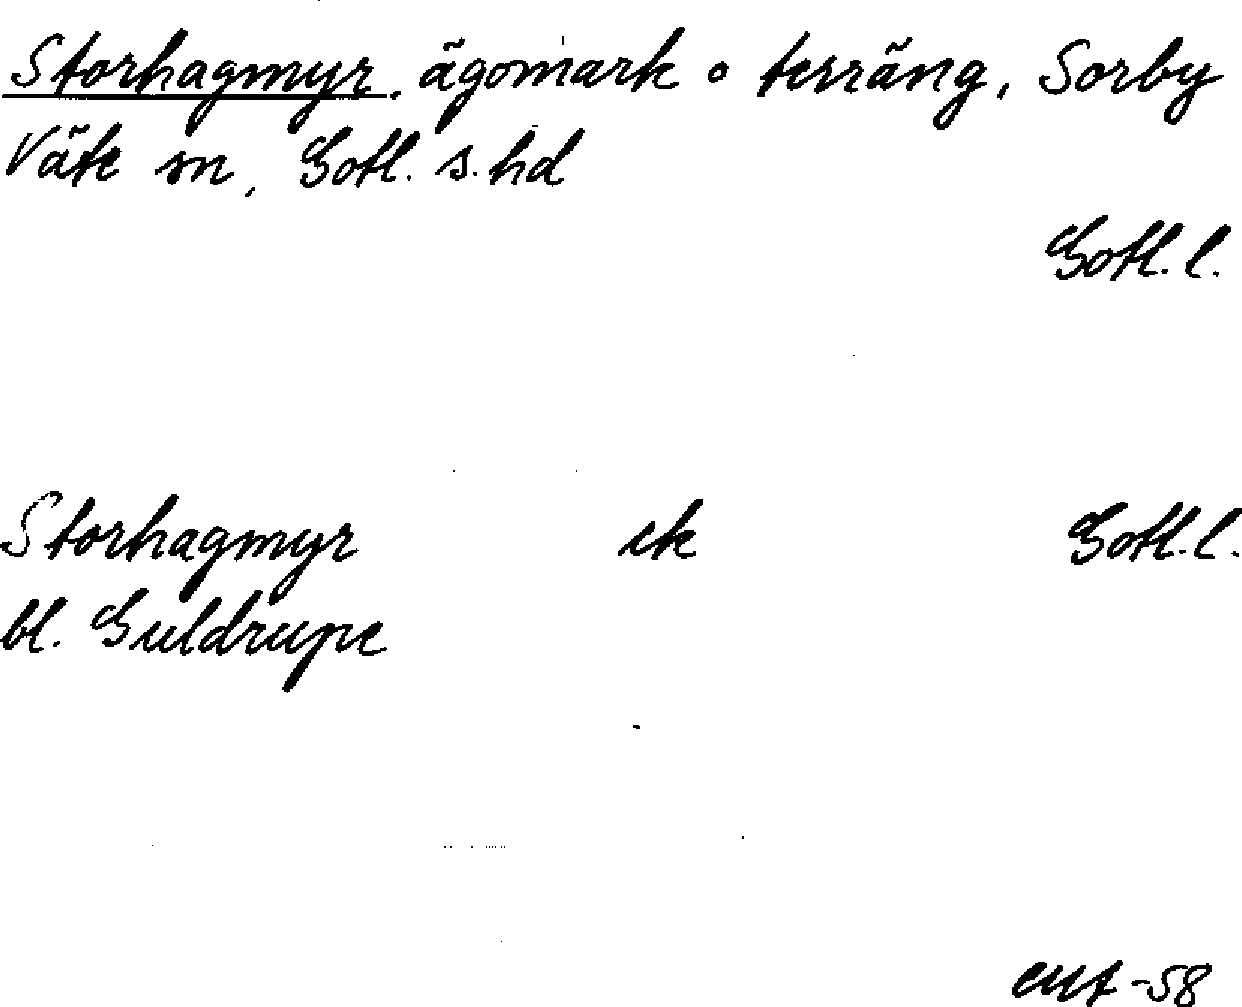 Storhagmyr, ägomark o terräng, Sorby
Väte sn, Gotl. s. hd
Gotl. l.
Storhagmyr ek Gotl. l.
bl. Guldrupe
-58